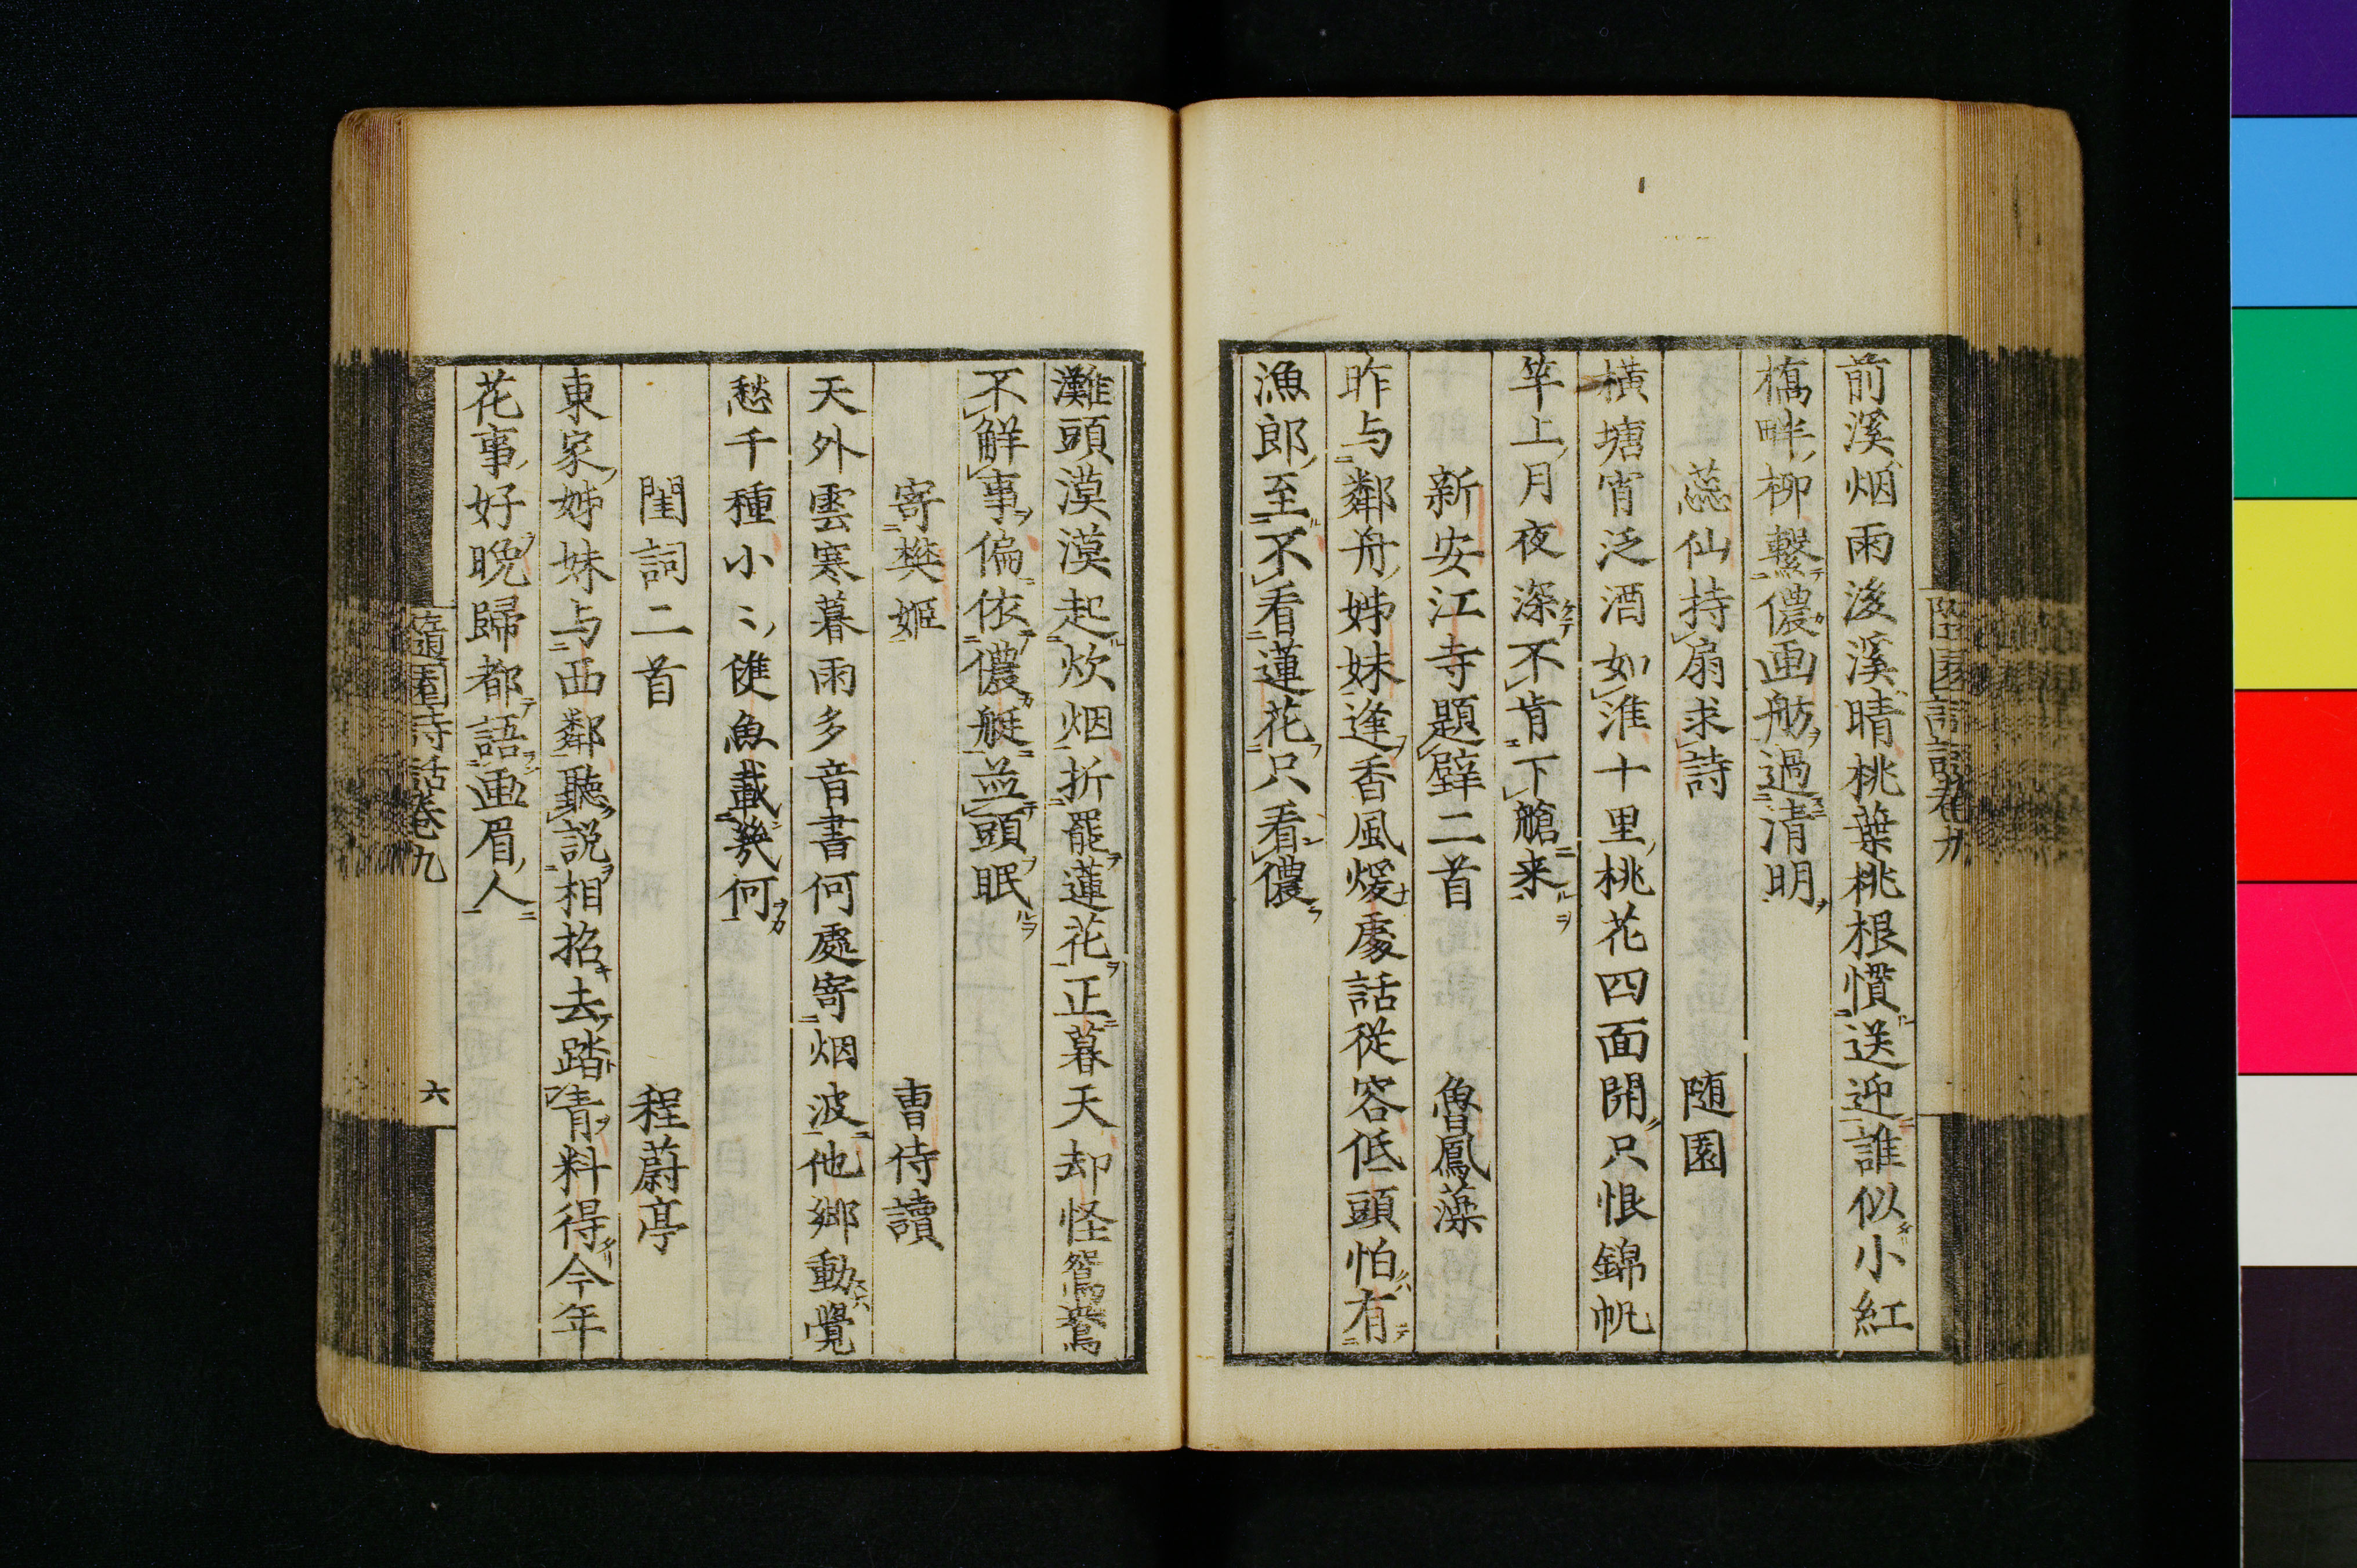 前溪烟雨後溪晴桃葉桃根慣送迎誰似小紅
橋畔柳繫儂画舫過清明
蕊仙持扇求詩 随園
横塘宵泛酒如淮十里桃花四面開只恨錦帆
竿上月夜深不肯下艙来
新安江寺題壁二首 魯鳳藻
昨与鄰舟姊妹逢香風煖處話従容低頭怕有
漁郎至不看蓮花只看儂
灘頭漠漠起炊烟折罷蓮花正暮天却怪鴛鴦
不解事偏依儂艇並頭眠
寄樊姬 曹侍讀
天外雲寒暮雨多音書何處寄烟波他郷動覺
愁千種小〻雙魚載幾何
閨詞二首 程蔚亭
東家姊妹与西鄰聽説相招去踏青料得今年
花事好晩歸都語画眉人
隨園詩話卷九 六